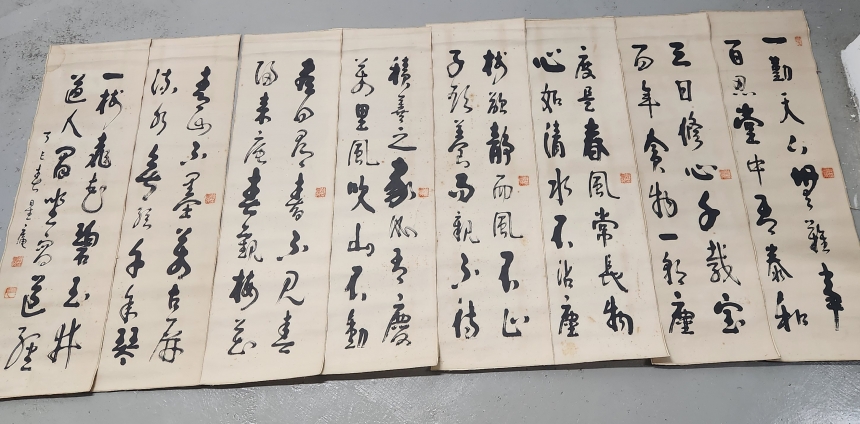 一勤天下無難事
百忍堂中有泰和
三日修心千載宝
百年貪物一朝塵
度是春風常長物
心如清水不沾塵
樹欲静而風不止
子欲養而親不待
積善之家必有慶
萬里風吹山不動
日尋春不見春
歸来庵春親梅花
青山不墨萬古屏
流水無弦千年琴
一樹飛花碧玉井
道人閒坐寫道經
丁巳春 星庵